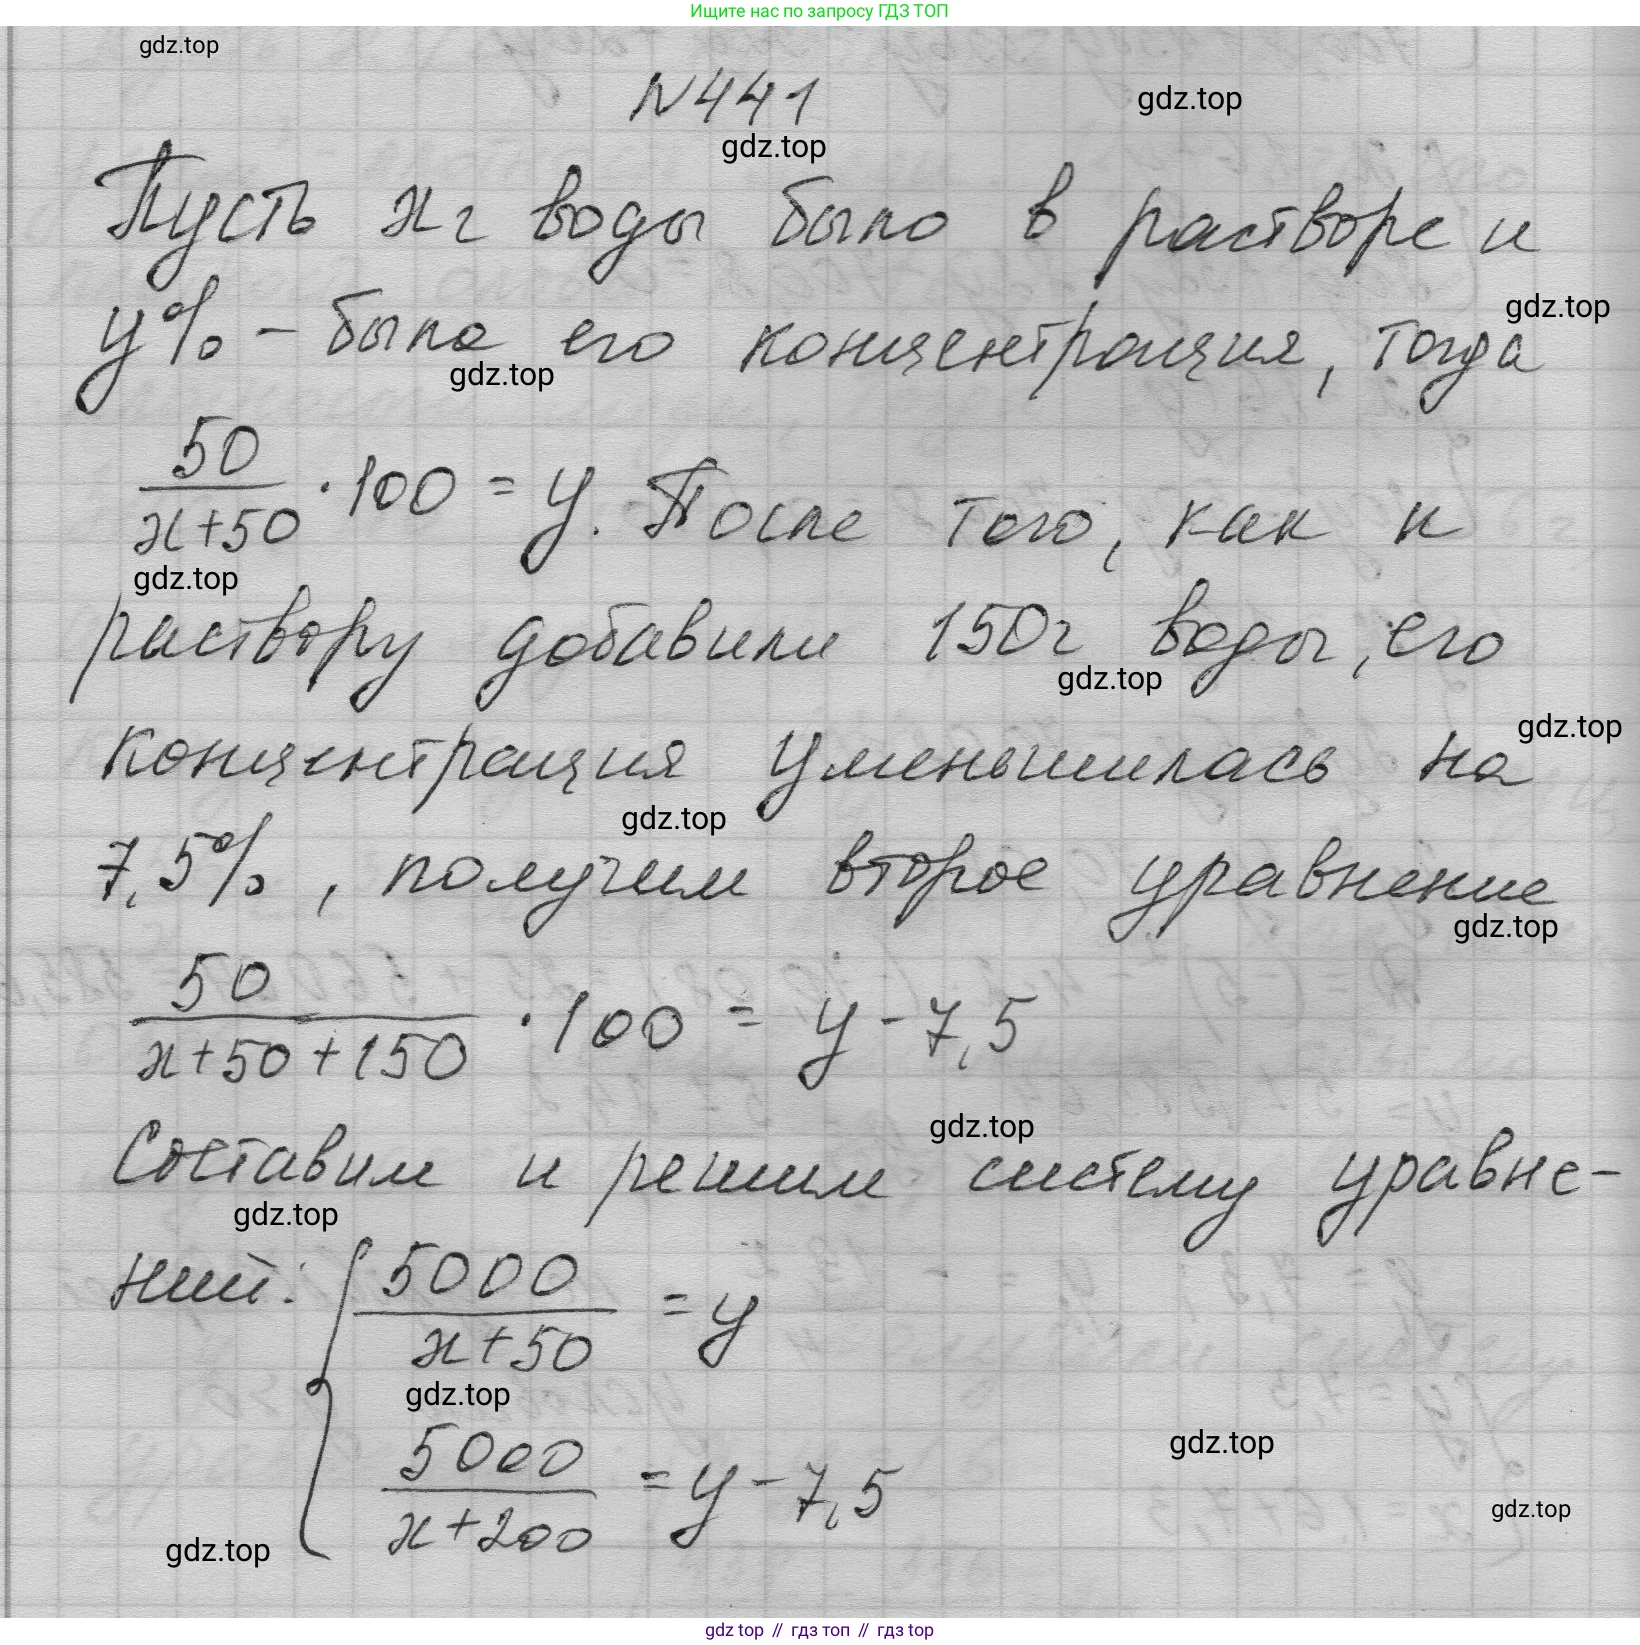 Ищите нас по запросу ГДЗ ТОП
gdz.top
N441
gdz.top
gdz.top
Пусть x г воды было в растворе и
gdz.top
y% – была его концентрация, тогда
gdz.top
50/(x+50) · 100 = y. После того, как к
gdz.top
раствору добавили 150г воды, его
gdz.top
gdz.top
концентрация уменьшилась на
gdz.top
7,5%, получим второе уравнение
gdz.top
50/(x+50+150) · 100 = y - 7,5
gdz.top
Составим и решим систему уравне-
gdz.top
ний: { 5000/(x+50) = y
gdz.top
gdz.top
5000/(x+200) = y - 7,5
gdz.top
gdz.top
gdz top // гдз топ // гдз top